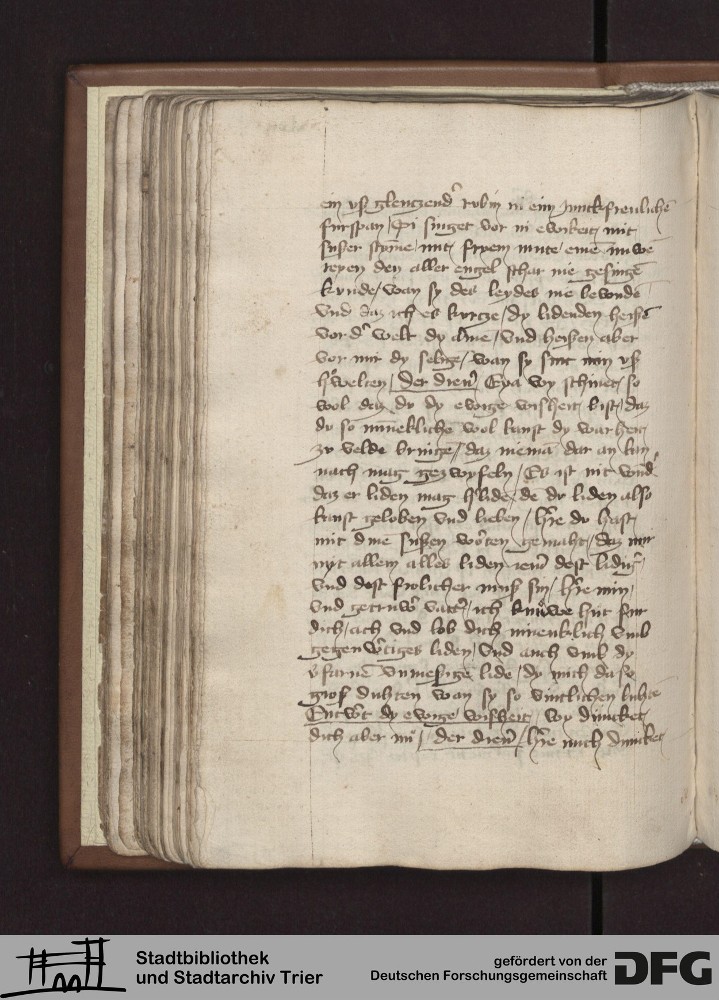 ein vß glenczend' rubin in eim junckfreulichē
furspan / Sy singet vor in ewikeit mit
süßer styme mit fryem mute eine nuwē
reyen den aller engel schar nie gesingē
kunde / wan sy des leydes nie bewondē
Vnd daz ich es kurcze / dy lidenden heißē
vor d' welt dy arme / Vnd heißen aber
vor mir dy selige / wan sy sint min vß
h'welten / Der dien' Eya wy schinet so
wol daz du dy ewige wisheit bist / daz
du so minekliche wol kanst dy warheit
zu velde bringē / daz niemā dar an kan
nach mag gezwyfeln / Es ist nit wūd'
daz er liden mag h'lide / de du liden also
kanst geloben vnd lieben / h're du hast
mit dine sußen worten gemaht / daz mir
nyt allein alles liden iem' dest lidiḡ
vnd dest frolicher muß sin / h're min
vnd getruw' vatt' / ich knuwe hut fur
dich / ach vnd lob dich minenklich vmb
gegenw'tiges liden / Vnd auch vmb dy
v'farnē vnmeßige lide / dy mich da so
groß duhten wan sy so vintlichen luhtē
Entw't dy ewige wisheit / wy duncket
dich aber nū / der dien' / h're mich duncket
Stadtbibliothek
und Stadtarchiv Trier
gefördert von der
Deutschen Forschungsgemeinschaft
DFG